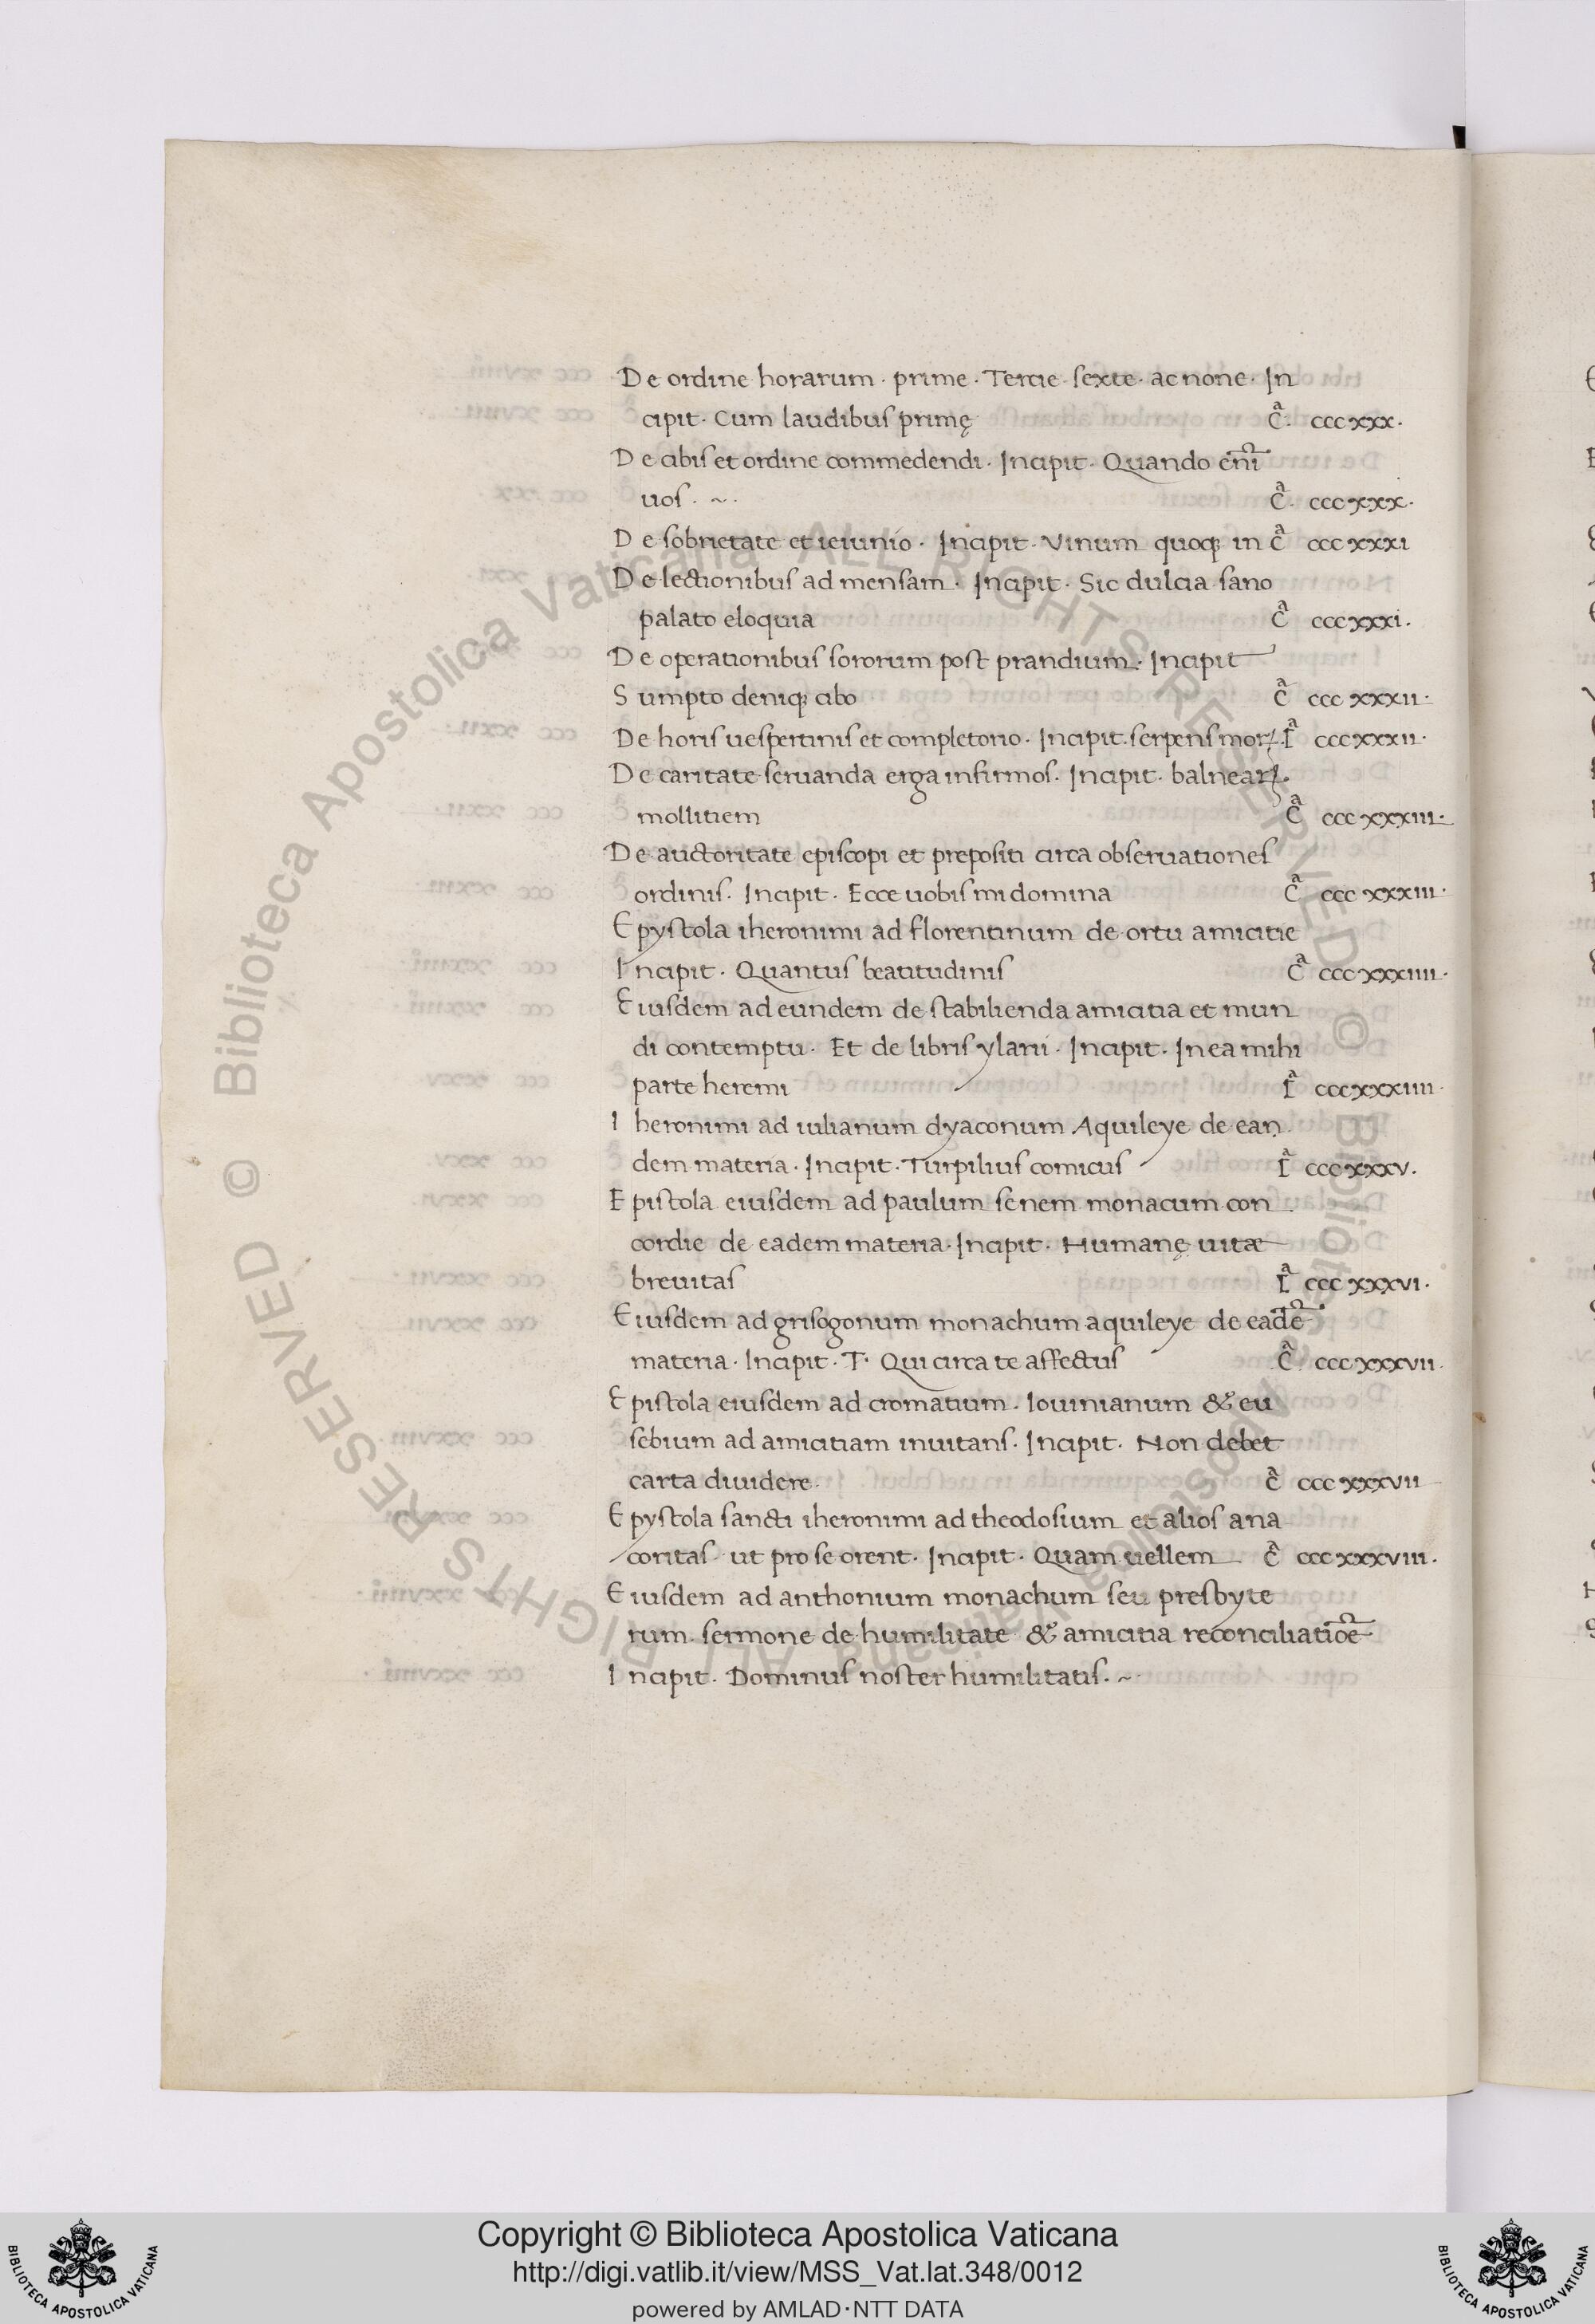 De ordine horarum · prime · Tercie · sexte · ac none · In
cipit · Cum laudibus primę cͣ· cccxxx·
De cibis et ordine commedendi · Incipit · Quando cn̄i
uos · ~ · cͣ· cccxxx·
De sobrietate et ieiunio · Incipit · Vinum quoqꝫ in cͣ cccxxxi
De lectionibus ad mensam · Incipit · Sic dulcia sano
palato eloquia cͣ cccxxxi·
De operationibus sororum post prandium · Incipit
Sumpto deniqꝫ cibo cͣ cccxxxii·
De horis uespertinis et completorio · Incipit · serpens morꝝ cͣ cccxxxii·
De caritate seruanda erga infirmos · Incipit · balnearꝝ·
mollitiem cͣ cccxxxiii·
De auctoritate episcopi et prepositi circa obseruationes
ordinis · Incipit · Ecce uobis mi domina cͣ cccxxxiii·
Epystola iheronimi ad florentinum de ortu amicitie
Incipit · Quantus beatitudinis cͣ cccxxxiiii·
Eiusdem ad eundem de stabilienda amicitia et mun
di contemptu · Et de libris ylarii · Incipit · In ea mihi
parte heremi cͣ cccxxxiiii·
Iheronimi ad iulianum dyaconum Aquileye de ean
dem materia · Incipit · Turpilius comicus cͣ cccxxxv·
Epistola eiusdem ad paulum senem monacum con
cordie de eadem materia · Incipit · Humanę uitæ
breuitas cͣ cccxxxvi·
Eiusdem ad grisogonum monachum aquileye de eadē
materia · Incipit · T· Qui circa te affectus cͣ cccxxxvii·
Epistola eiusdem ad cromatium · Iouinianum & eu
sebium ad amicitiam inuitans · Incipit · Non debet
carta diuidere · cͣ cccxxxvii
Epystola sancti iheronimi ad theodosium et alios ana
coritas · ut pro se orent · Incipit · Quam uellem cͣ cccxxxviii·
Eiusdem ad anthonium monachum seu presbyte
rum · sermone de humilitate & amicitia reconciliatiōe
Incipit · Dominus noster humilitatis · ~
© Biblioteca Apostolica Vaticana ALL RIGHTS RESERVED © Biblioteca Apostolica Vaticana ALL RIGHTS RESERVED
Copyright © Biblioteca Apostolica Vaticana
http://digi.vatlib.it/view/MSS_Vat.lat.348/0012
powered by AMLAD·NTT DATA
BIBLIOTECA APOSTOLICA VATICANA
BIBLIOTECA APOSTOLICA VATICANA